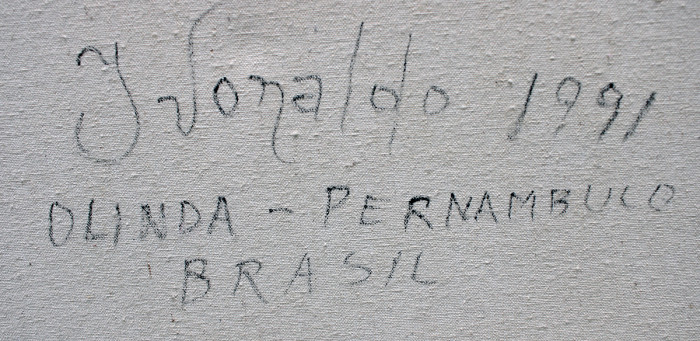 Ivonaldo 1991
OLINDA - PERNAMBUCO
BRASIL